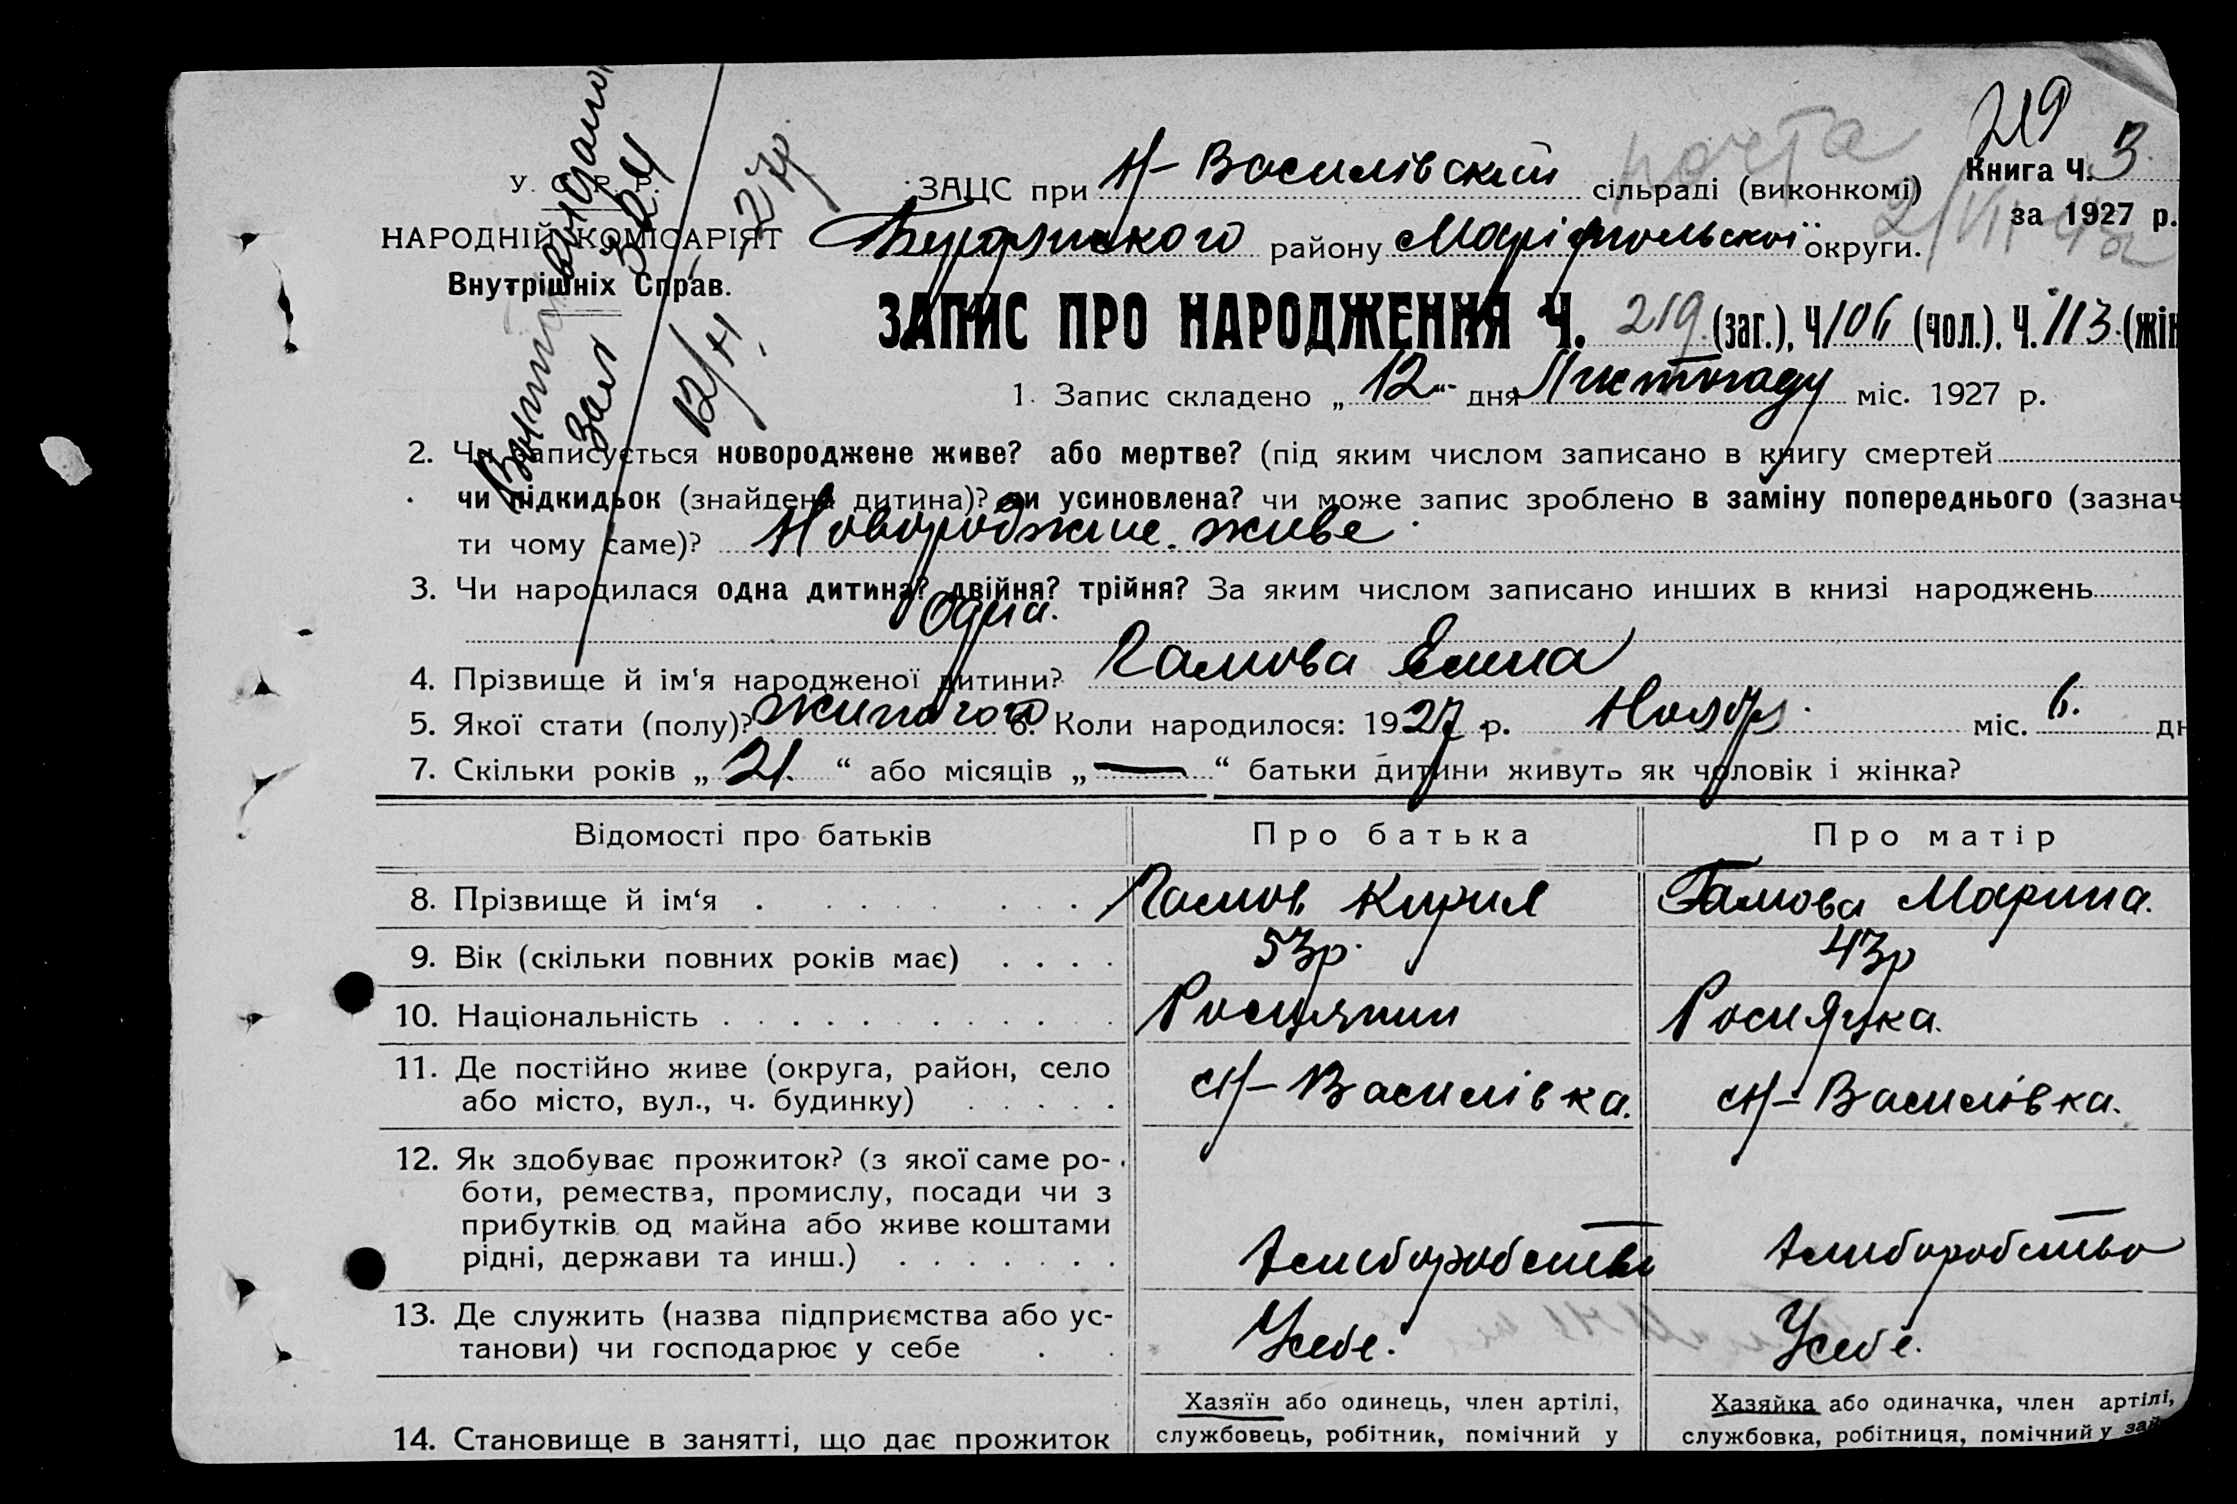 219
почта
У. С. Р. Р.
НАРОДНІЙ КОМІСАРІЯТ
Внутрішніх Справ.
Зал 324
12/XI - 27р.
ЗАЦС при Н-Василівский сільраді (виконкомі)
Книга Ч. 3
за 1927 р.
району Маріупольскої округи.
ЗАПИС ПРО НАРОДЖЕННЯ Ч. 219 (заг.), Ч 106 (чол.). Ч. 113 (жін
1. Запис складено „ 12 “ дня Листопаду міс. 1927 р.
2. Чи записується новороджене живе? або мертве? (під яким числом записано в книгу смертей
чи підкидьок (знайдена дитина)? чи усиновлена? чи може запис зроблено в заміну попереднього (зазнач
ти чому саме)? Новороджене живе.
3. Чи народилася одна дитина? двійня? трійня? За яким числом записано инших в книзі народжень
Одна.
4. Прізвище й ім‘я народженої дитини? Гамова Елена
5. Якої стати (полу)? Жиночого 6. Коли народилося: 1927 р. Ноябр. міс. 6. дн
7. Скільки років „ 21. “ або місяців „ — “ батьки дитини живуть як чоловік і жінка?
Відомості про батьків Про батька Про матір
8. Прізвище й ім‘я Гамов Кирил Гамова Марина.
9. Вік (скільки повних років має) 53р. 43р
10. Національність Росиянин Росиянка.
11. Де постійно живе (округа, район, село
або місто, вул., ч. будинку) Н-Василівка. Н-Василівка.
12. Як здобуває прожиток? (з якої саме ро-
боти, ремества, промислу, посади чи з
прибутків од майна або живе коштами
рідні, держави та инш.) Хлиборобство Хлиборобство
13. Де служить (назва підприємства або ус-
танови) чи господарює у себе Усебе. Усебе.
Хазяїн або одинець, член артілі, Хазяйка або одиначка, член артілі,
14. Становище в занятті, що дає прожиток службовець, робітник, помічний у службовка, робітниця, помічний у зай